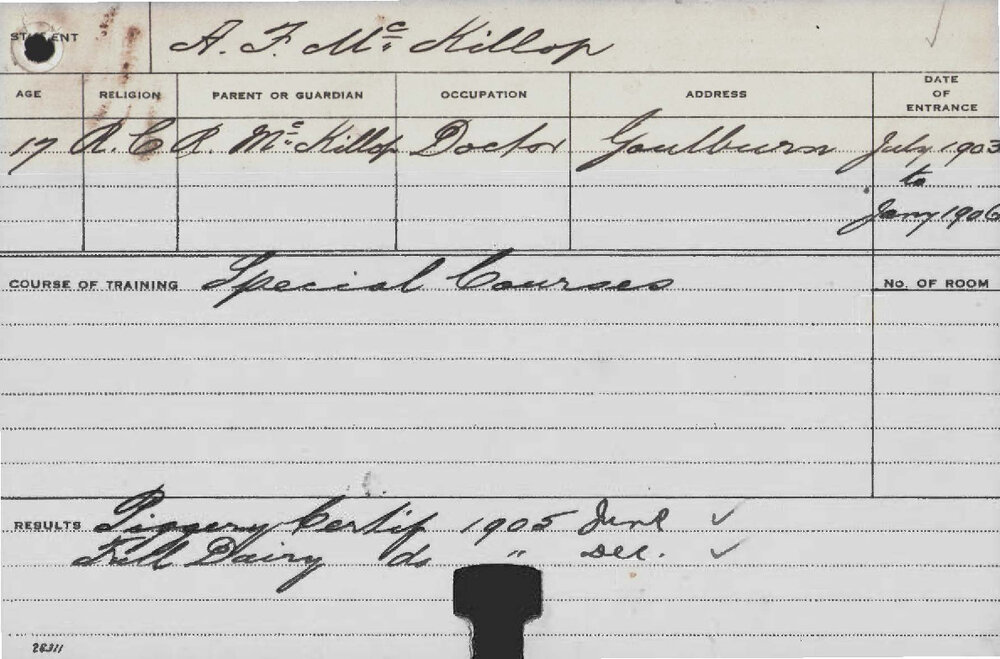 STUDENT A. F. McKillop
AGE RELIGION PARENT OR GUARDIAN OCCUPATION ADDRESS DATE OF ENTRANCE
17 R.C R. McKillop Doctor Goulburn July 1903
to
Jany 1906
COURSE OF TRAINING Special Courses No. OF ROOM
RESULTS Piggery Certif 1905 June ✓
Full Dairy do " Dec. ✓